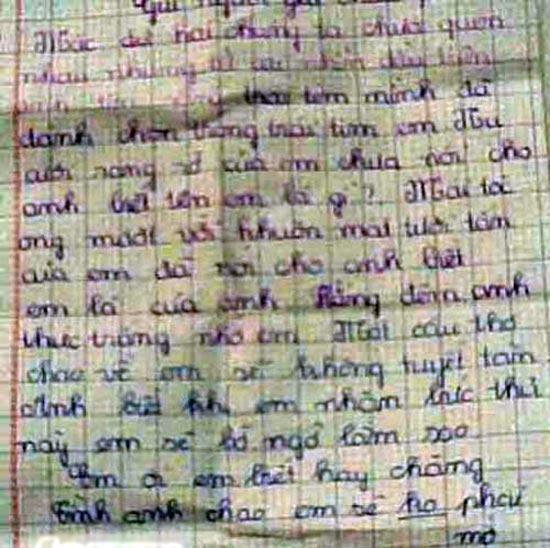 Gửi người
Mặc dù hai chúng ta chưa quen
nhau nhưng
trái tim mình đã
đanh chọn trong trai tim em Nu
cười rang rở của em chưa noi cho
anh biết tên em là gì? Mái toc
ong mướt với khuôn mat tươi tắn
của em đã noi cho anh biết
em là của anh Hằng đêm anh
thức trắng nhớ em Một câu thơ
chao về em sẽ không tuyệt tám
Anh biết khi em nhân bức thư
này em sẽ bở ngở lắm sao
Em ơi em biết hay chăng
Tình anh chao em sẽ ko phai
mờ